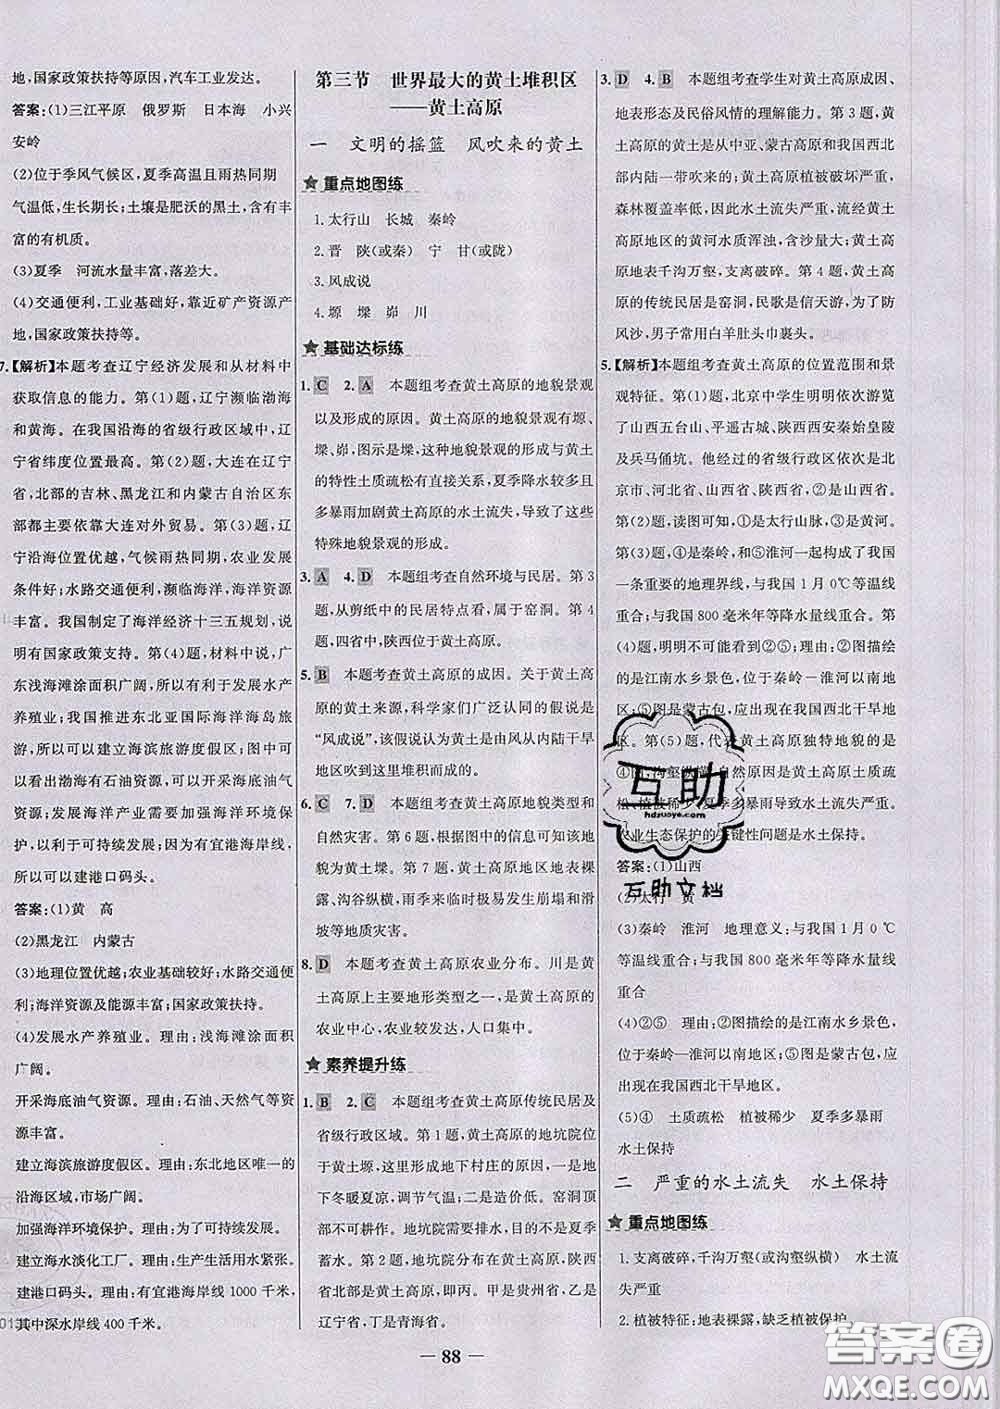 地,国家政策扶持等原因,汽车工业发达。
答案:(1)三江平原　俄罗斯　日本海　小兴
安岭
(2)位于季风气候区,夏季高温且雨热同期
气温低,生长期长;土壤是肥沃的黑土,含有丰
富的有机质。
(3)夏季　河流水量丰富,落差大。
(4)交通便利,工业基础好,靠近矿产资源产
地,国家政策扶持等。
7.【解析】本题考查辽宁经济发展和从材料中
获取信息的能力。第(1)题,辽宁濒临渤海
和黄海。在我国沿海的省级行政区域中,辽
宁省纬度位置最高。第(2)题,大连在辽宁
省,北部的吉林、黑龙江和内蒙古自治区东
部都主要依靠大连对外贸易。第(3)题,辽
宁沿海位置优越,气候雨热同期,农业发展
条件好;水路交通便利,濒临海洋,海洋资源
丰富。我国制定了海洋经济十三五规划,说
明有国家政策支持。第(4)题,材料中说,广
东浅海滩涂面积广阔,所以有利于发展水产
养殖业;我国推进东北亚国际海洋海岛旅
游,所以可以建立海滨旅游度假区;图中可
以看出渤海有石油资源,可以开采海底油气
资源;发展海洋产业需要加强海洋环境保
护,以利于可持续发展;因为有宜港海岸线,
所以可以建港口码头。
答案:(1)黄　高
(2)黑龙江　内蒙古
(3)地理位置优越;农业基础较好;水路交通便
利;海洋资源及能源丰富;国家政策扶持。
(4)发展水产养殖业。理由:浅海滩涂面积
广阔。
开采海底油气资源。理由:石油、天然气等资
源丰富。
建立海滨旅游度假区。理由:东北地区唯一的
沿海区域,市场广阔。
加强海洋环境保护。理由:为了可持续发展。
建立海水淡化工厂。理由:生产生活用水紧张。
建港口码头。理由:有宜港海岸线1000千米,
其中深水岸线400千米。
第三节　世界最大的黄土堆积区
——黄土高原
一　文明的摇篮　风吹来的黄土
★重点地图练
1.太行山　长城　秦岭
2.晋　陕(或秦)　宁　甘(或陇)
3.风成说
4.塬　墚　峁　川
★基础达标练
1. C　2. A　本题组考查黄土高原的地貌景观
以及形成的原因。黄土高原的地貌景观有塬、
墚、峁,图示是墚,这种地貌景观的形成与黄土
的特性土质疏松有直接关系,夏季降水较多且
多暴雨加剧黄土的水土流失,导致了这些
特殊地貌景观的形成。
3. A　4. D　本题组考查自然环境与民居。第3
题,从剪纸中的民居特点看,属于窑洞。第4
题,四省中,陕西位于黄土高原。
5. B　本题考查黄土高原的成因。关于黄土高
原的黄土来源,科学家们广泛认同的假说是
“风成说”,该假说认为黄土是由风从内陆干旱
地区吹到这里堆积而成的。
6. C　7. D　本题组考查黄土高原地貌类型和
自然灾害。第6题,根据图中的信息可知该地
貌为黄土墚。第7题,黄土高原地区地表裸
露、沟谷纵横,暴雨来临时极易发生崩塌和滑
坡等地质灾害。
8. D　本题考查黄土高原农业分布。川是黄土
高原上主要地形类型之一,是黄土高原的
农业中心,农业较发达,人口集中。
★素养提升练
1. B　2. C　本题组考查黄土高原传统民居及
省级行政区域。第1题,黄土高原的地坑院位
于地下,这里采用地下村庄的原因,一是地
下冬暖夏凉,调节气温;二是造价低。窑洞顶
部不可耕作。地坑院需要排水,目的不是
蓄水。第2题,地坑院分布在黄土高原,陕西
省的部分在黄土高原,即丙。甲是贵州省,乙是
辽宁省,丁是青海省。
3. D　4. B　本题组考查学生对黄土高原成因、
地表形态及民俗风情的理解能力。第3题,黄
土高原的黄土是从中亚、蒙古高原和我国西北
部内陆一带吹来的;黄土高原植被破坏严重,
森林覆盖率低,因此水土流失严重,流经黄土
高原地区的黄河水质浑浊,含沙量大;黄土高
原地区地表千沟万壑,支离破碎。第4题,黄
土高原的传统民居是窑洞,民歌是信天游,为了防
风沙,男子常用白羊肚头巾裹头。
5.【解析】本题考查黄土高原的位置范围和景
观特征。第(1)题,北京中学生明明依次游览
了山西五台山、平遥古城、陕西西安秦始皇陵
及兵马俑坑。他经过的省级行政区依次是北
京市、河北省、山西省、陕西省,②是山西省。
第(2)题,读图可知,①是太行山脉,③是黄河。
第(3)题,④是秦岭和⑤淮河一起构成了我国
一条重要的地理界线,与我国1月0℃等温线
重合,与我国800毫米年等降水量线重合。第
(4)题,明明不可能看到②⑤;理由:②图描绘
的是江南水乡景色,位于秦岭—淮河以南地
区;⑤图是蒙古包,应出现在我国西北干旱地
区。第(5)题,代表黄土高原独特地貌的是
④图,沟壑纵横,自然原因是黄土土质疏
松、植被稀少、夏季多暴雨导致水土流失严重。
农业生态保护的关键性问题是水土保持。
答案:(1)山西
(2)太行　黄
(3)秦岭　淮河　地理意义:与我国1月0℃
等温线重合,与我国800毫米年等降水量线
重合
(4)②⑤　理由:②图描绘的是江南水乡景色,
位于秦岭—淮河以南地区;⑤图是蒙古包,应
出现在我国西北干旱地区。
(5)④　土质疏松　植被稀少　夏季多暴雨
水土保持
二　严重的水土流失　水土保持
★重点地图练
1.支离破碎,千沟万壑(或沟壑纵横)　水土流
失严重
2.植被特征:植被稀少,地表裸露,缺乏植被保护。
— 88 —
互助
hdzuoye.com
互助文档
答案圈
MXQE.COM